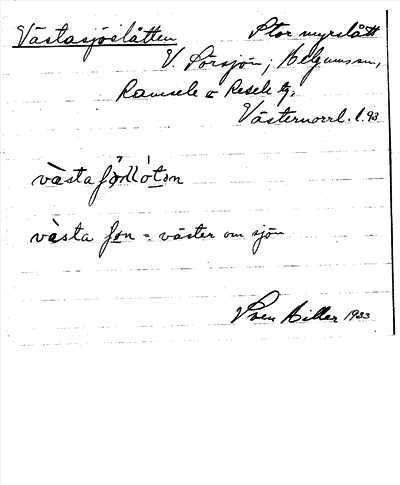 Västasjöslåtten Stor myrslått
V. Sörsjön, Helgumssn,
Ramsele o Resele tg.
Västernorrl. l. 93
västa
västa = väster om sjön
Sven Hiller 1933